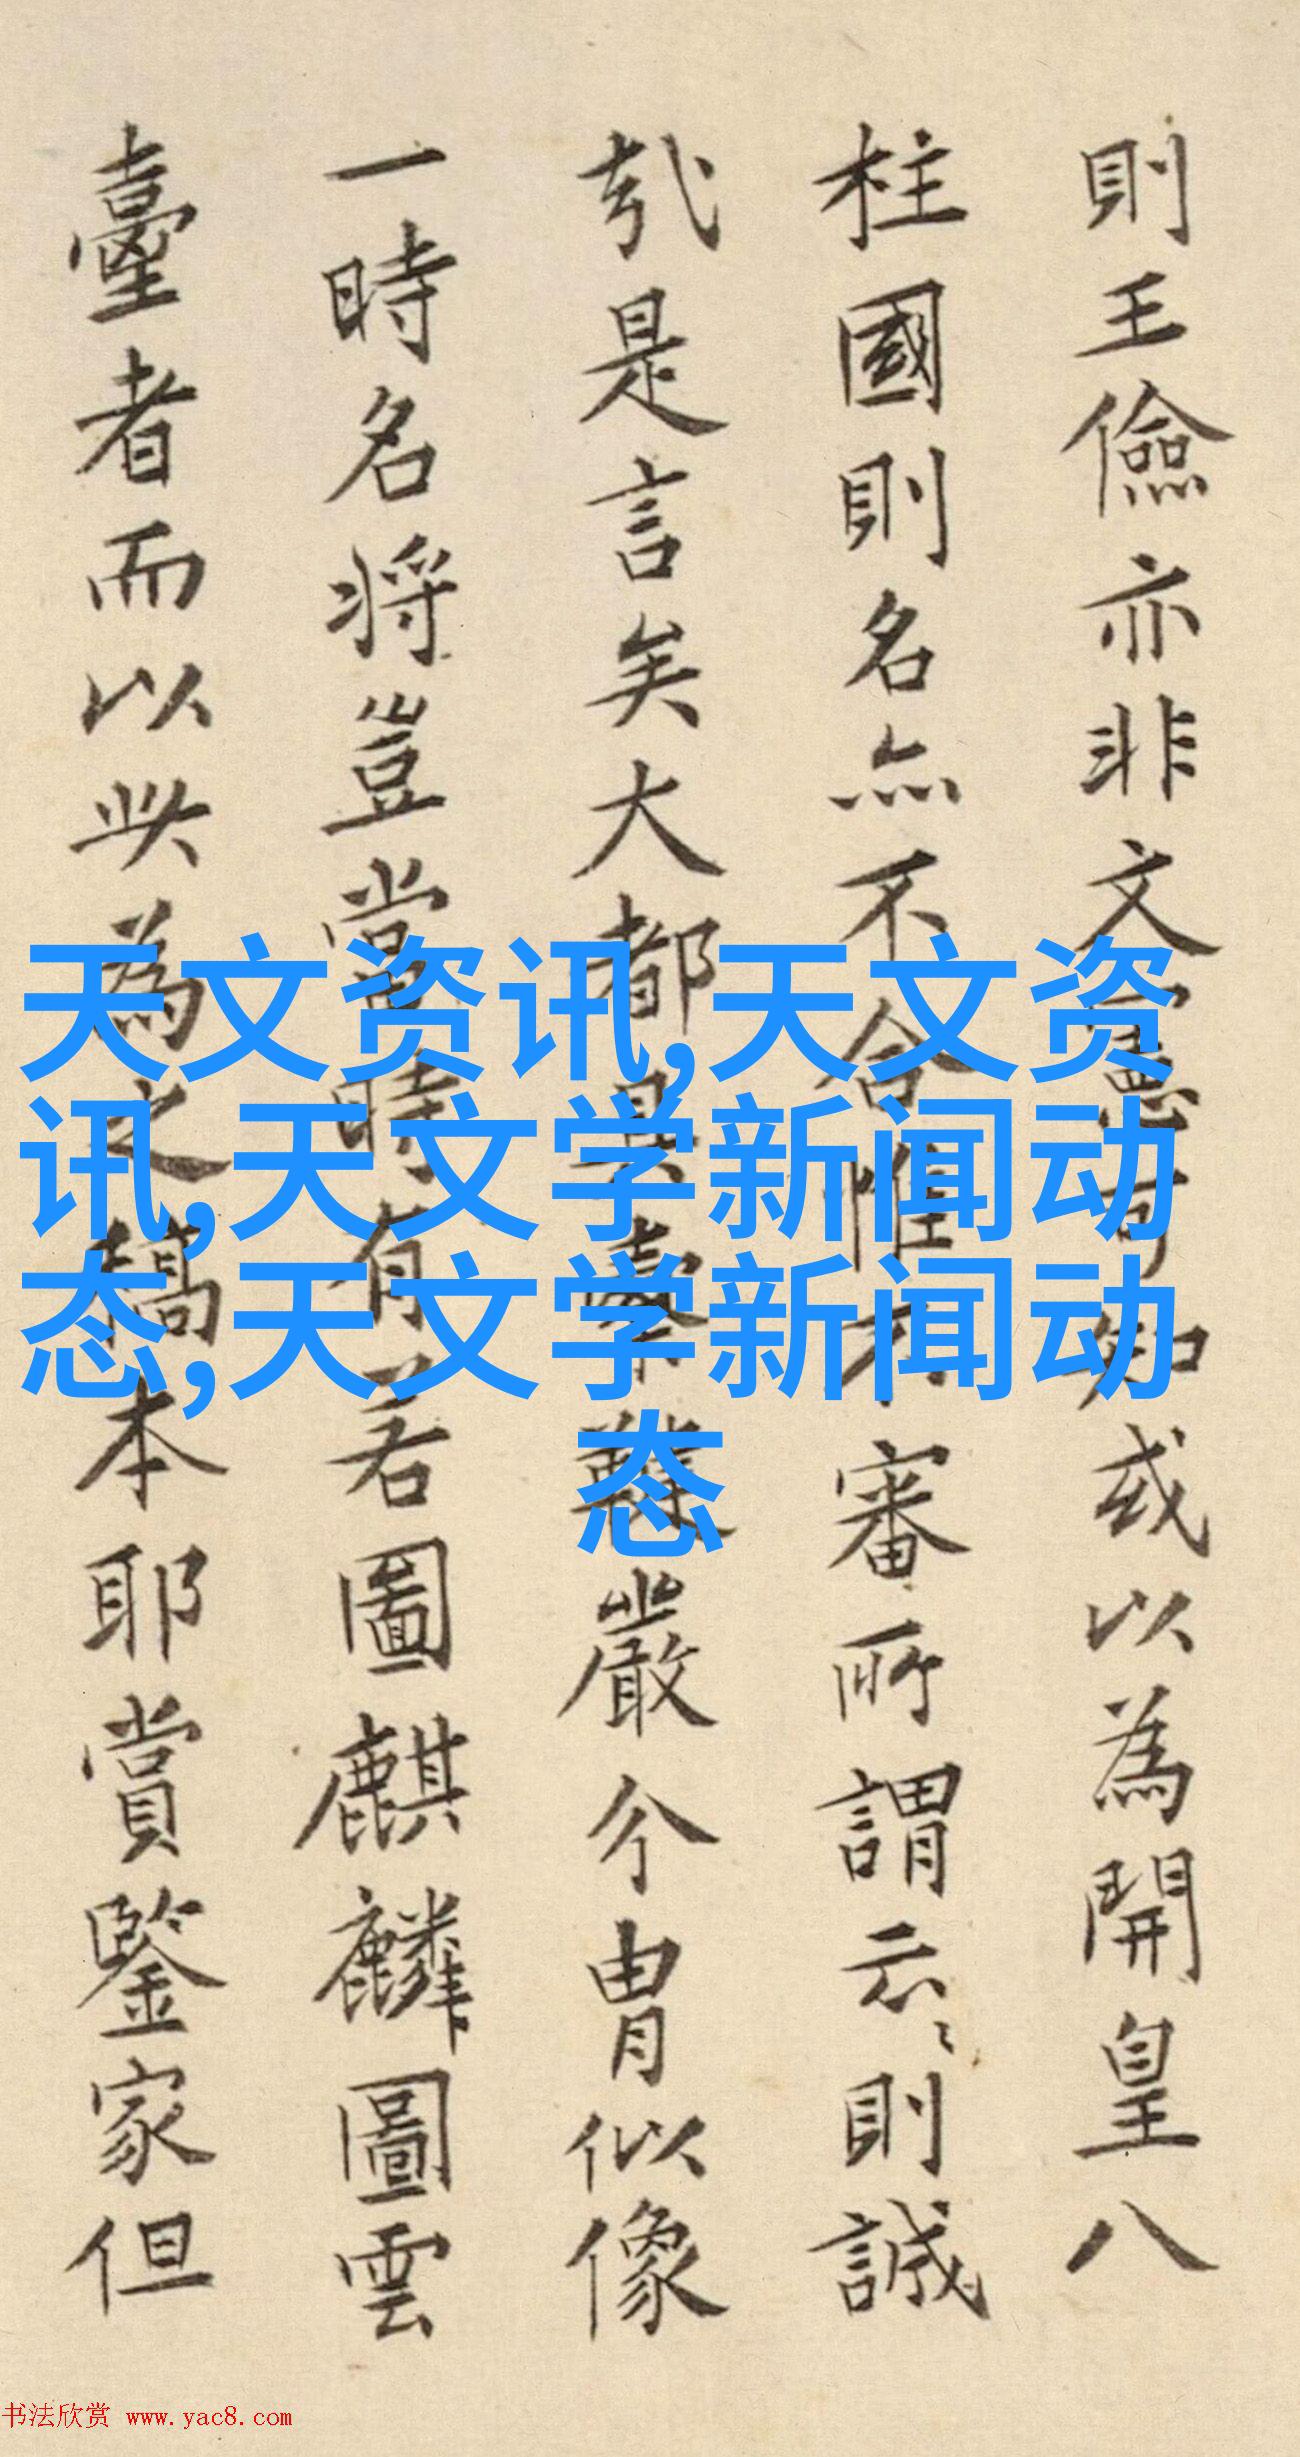 則王儉亦非文憲可知或以為開皇八
柱國則名亦不合惟不審所謂云〻則誠
哉是言矣大都具難嚴今胄似像
一時名将豈當時有若圖麒麟圖雲
臺者而以此為之稿本耶賞鑒家但
天文资讯,天文资
讯,天文学新闻动
态,天文学新闻动
态
书法欣赏 www.yac8.com